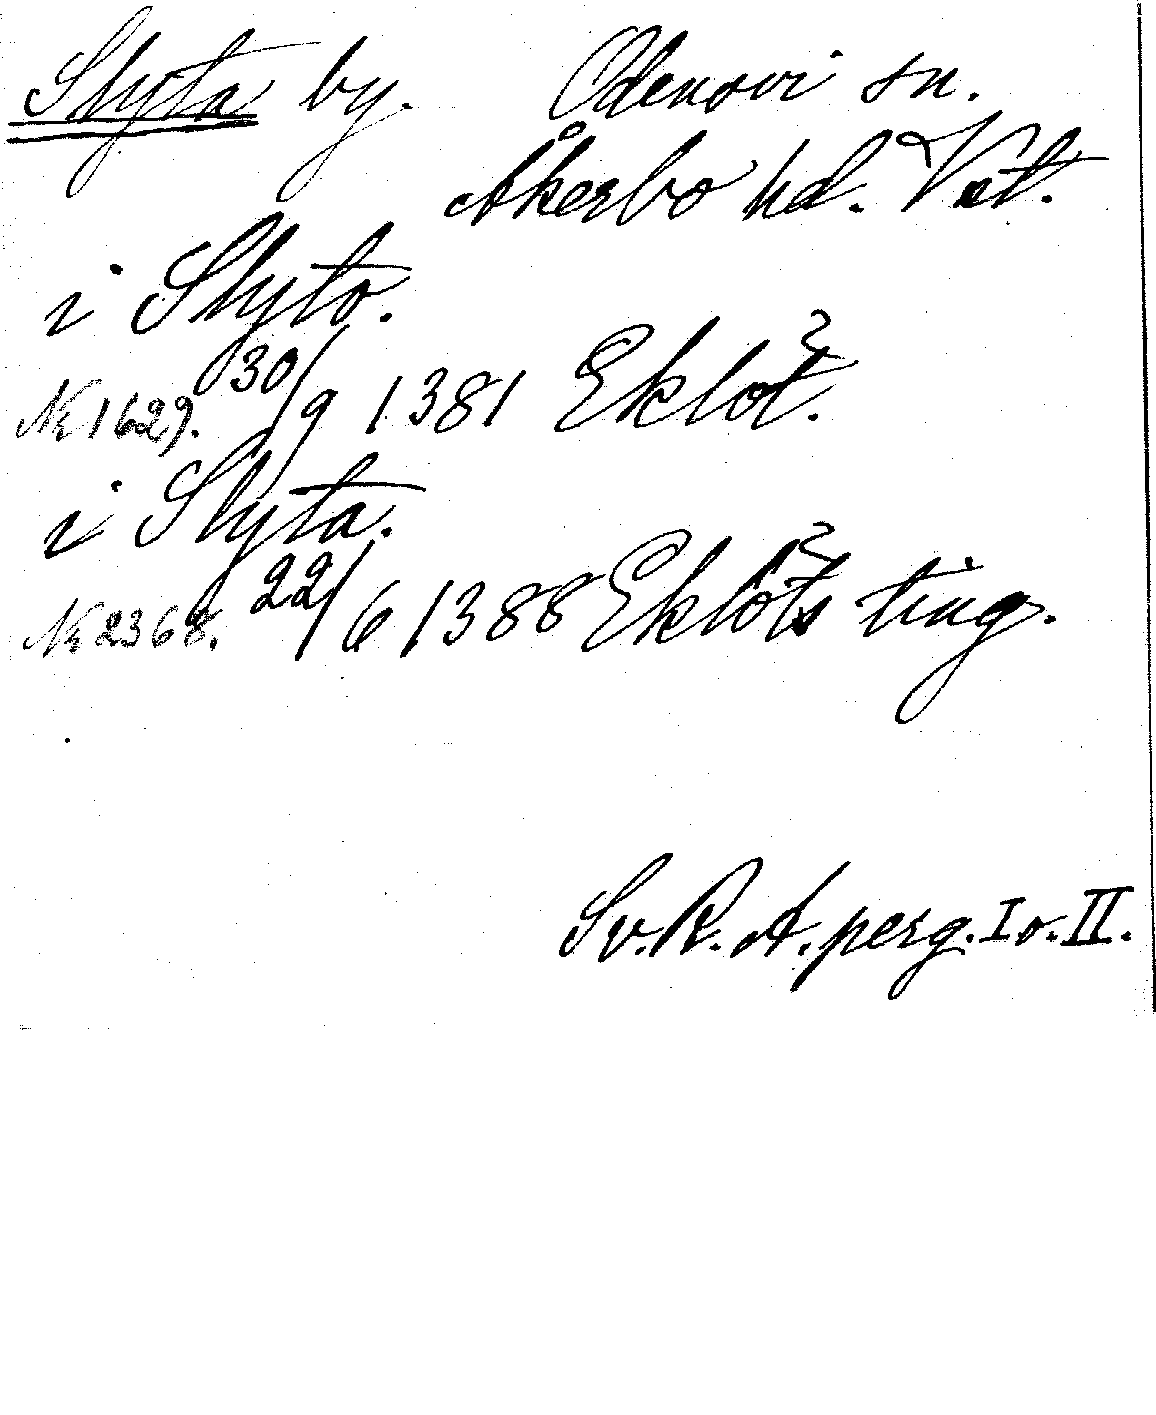 Slyta by. Odensvi sn.
Åkerbo hd.
i Slyto.
№ 1629. 30/9 1381 Eklot.
i Slyta.
№ 2368. 22/6 1388 Eklöts ting.
Sv. R. A. perg. I o. II.